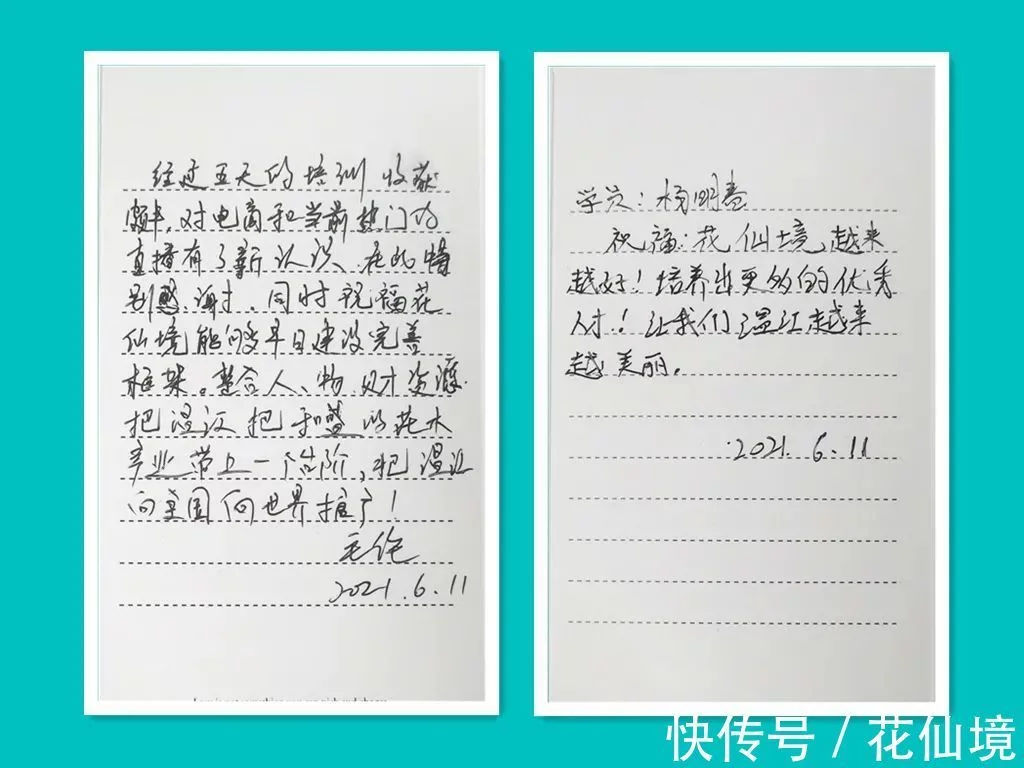 经过五天的培训收获
颇丰,对电商和当前热门的
直播有了新认识、在此特
别感谢,同时祝福花
仙境能够早日建设完善
框架。整合人、物、财资源.
把温江把和盛的花木
产业带上一个台阶,把温江
向全国向世界推广!
毛
2021.6.11
学员:杨明春
祝福:花仙境越来
越好!培养出更多的优秀
人才!让我们温江越来
越美丽。
2021.6.11
快传号/花仙境